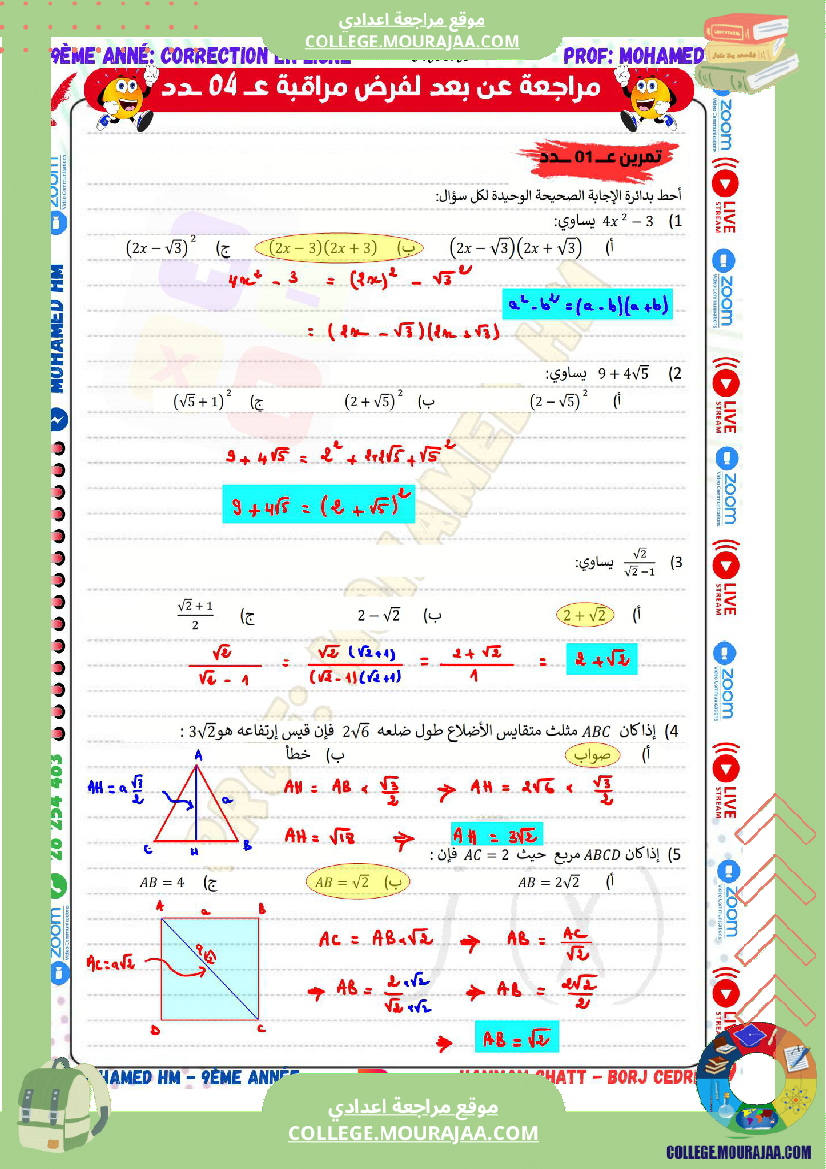 موقع مراجعة اعدادي
COLLEGE.MOURAJAA.COM
9ÈME ANNÉ: CORRECTION EN LIGNE
PROF: MOHAMED
مراجعة عن بعد لفرض مراقبة عـ 04 ـدد
تمرين عــ 01 ــدد
أحط بدائرة الإجابة الصحيحة الوحيدة لكل سؤال:
1) 4x² − 3 يساوي:
أ) (2x − √3)(2x + √3) ب) (2x − 3)(2x + 3) ج) (2x − √3)²
4x² - 3 = (2x)² - √3²
a² - b² = (a - b)(a + b)
= (2x - √3)(2x + √3)
2) 9 + 4√5 يساوي:
أ) (2 − √5)² ب) (2 + √5)² ج) (√5 + 1)²
9 + 4√5 = 2² + 2×2√5 + √5²
9 + 4√5 = (2 + √5)²
3) √2/(√2 −1) يساوي:
أ) 2 + √2 ب) 2 − √2 ج) (√2 + 1)/2
√2/(√2 - 1) = √2 (√2+1)/((√2-1)(√2+1)) = (2 + √2)/1 = 2 + √2
4) إذا كان ABC مثلث متقايس الأضلاع طول ضلعه 2√6 فإن قيس إرتفاعه هو 3√2 :
أ) صواب ب) خطأ
A
AH = a √3/2
a
C H B
AH = AB × √3/2 → AH = 2√6 × √3/2
AH = √18 → AH = 3√2
5) إذا كان ABCD مربع حيث AC = 2 فإن :
أ) AB = 2√2 ب) AB = √2 ج) AB = 4
A a B
a√2
AC = a√2
D C
AC = AB×√2 → AB = AC/√2
→ AB = 2×√2/(√2×√2) → AB = 2√2/2
→ AB = √2
zoom
Video Communications
LIVE
STREAM
MOHAMED HM
28 254 403
PROF: MOHAMED HM
HAMED HM - 9ÈME ANNÉE
HAMMAM CHATT - BORJ CEDRI
موقع مراجعة اعدادي
COLLEGE.MOURAJAA.COM
COLLEGE.MOURAJAA.COM